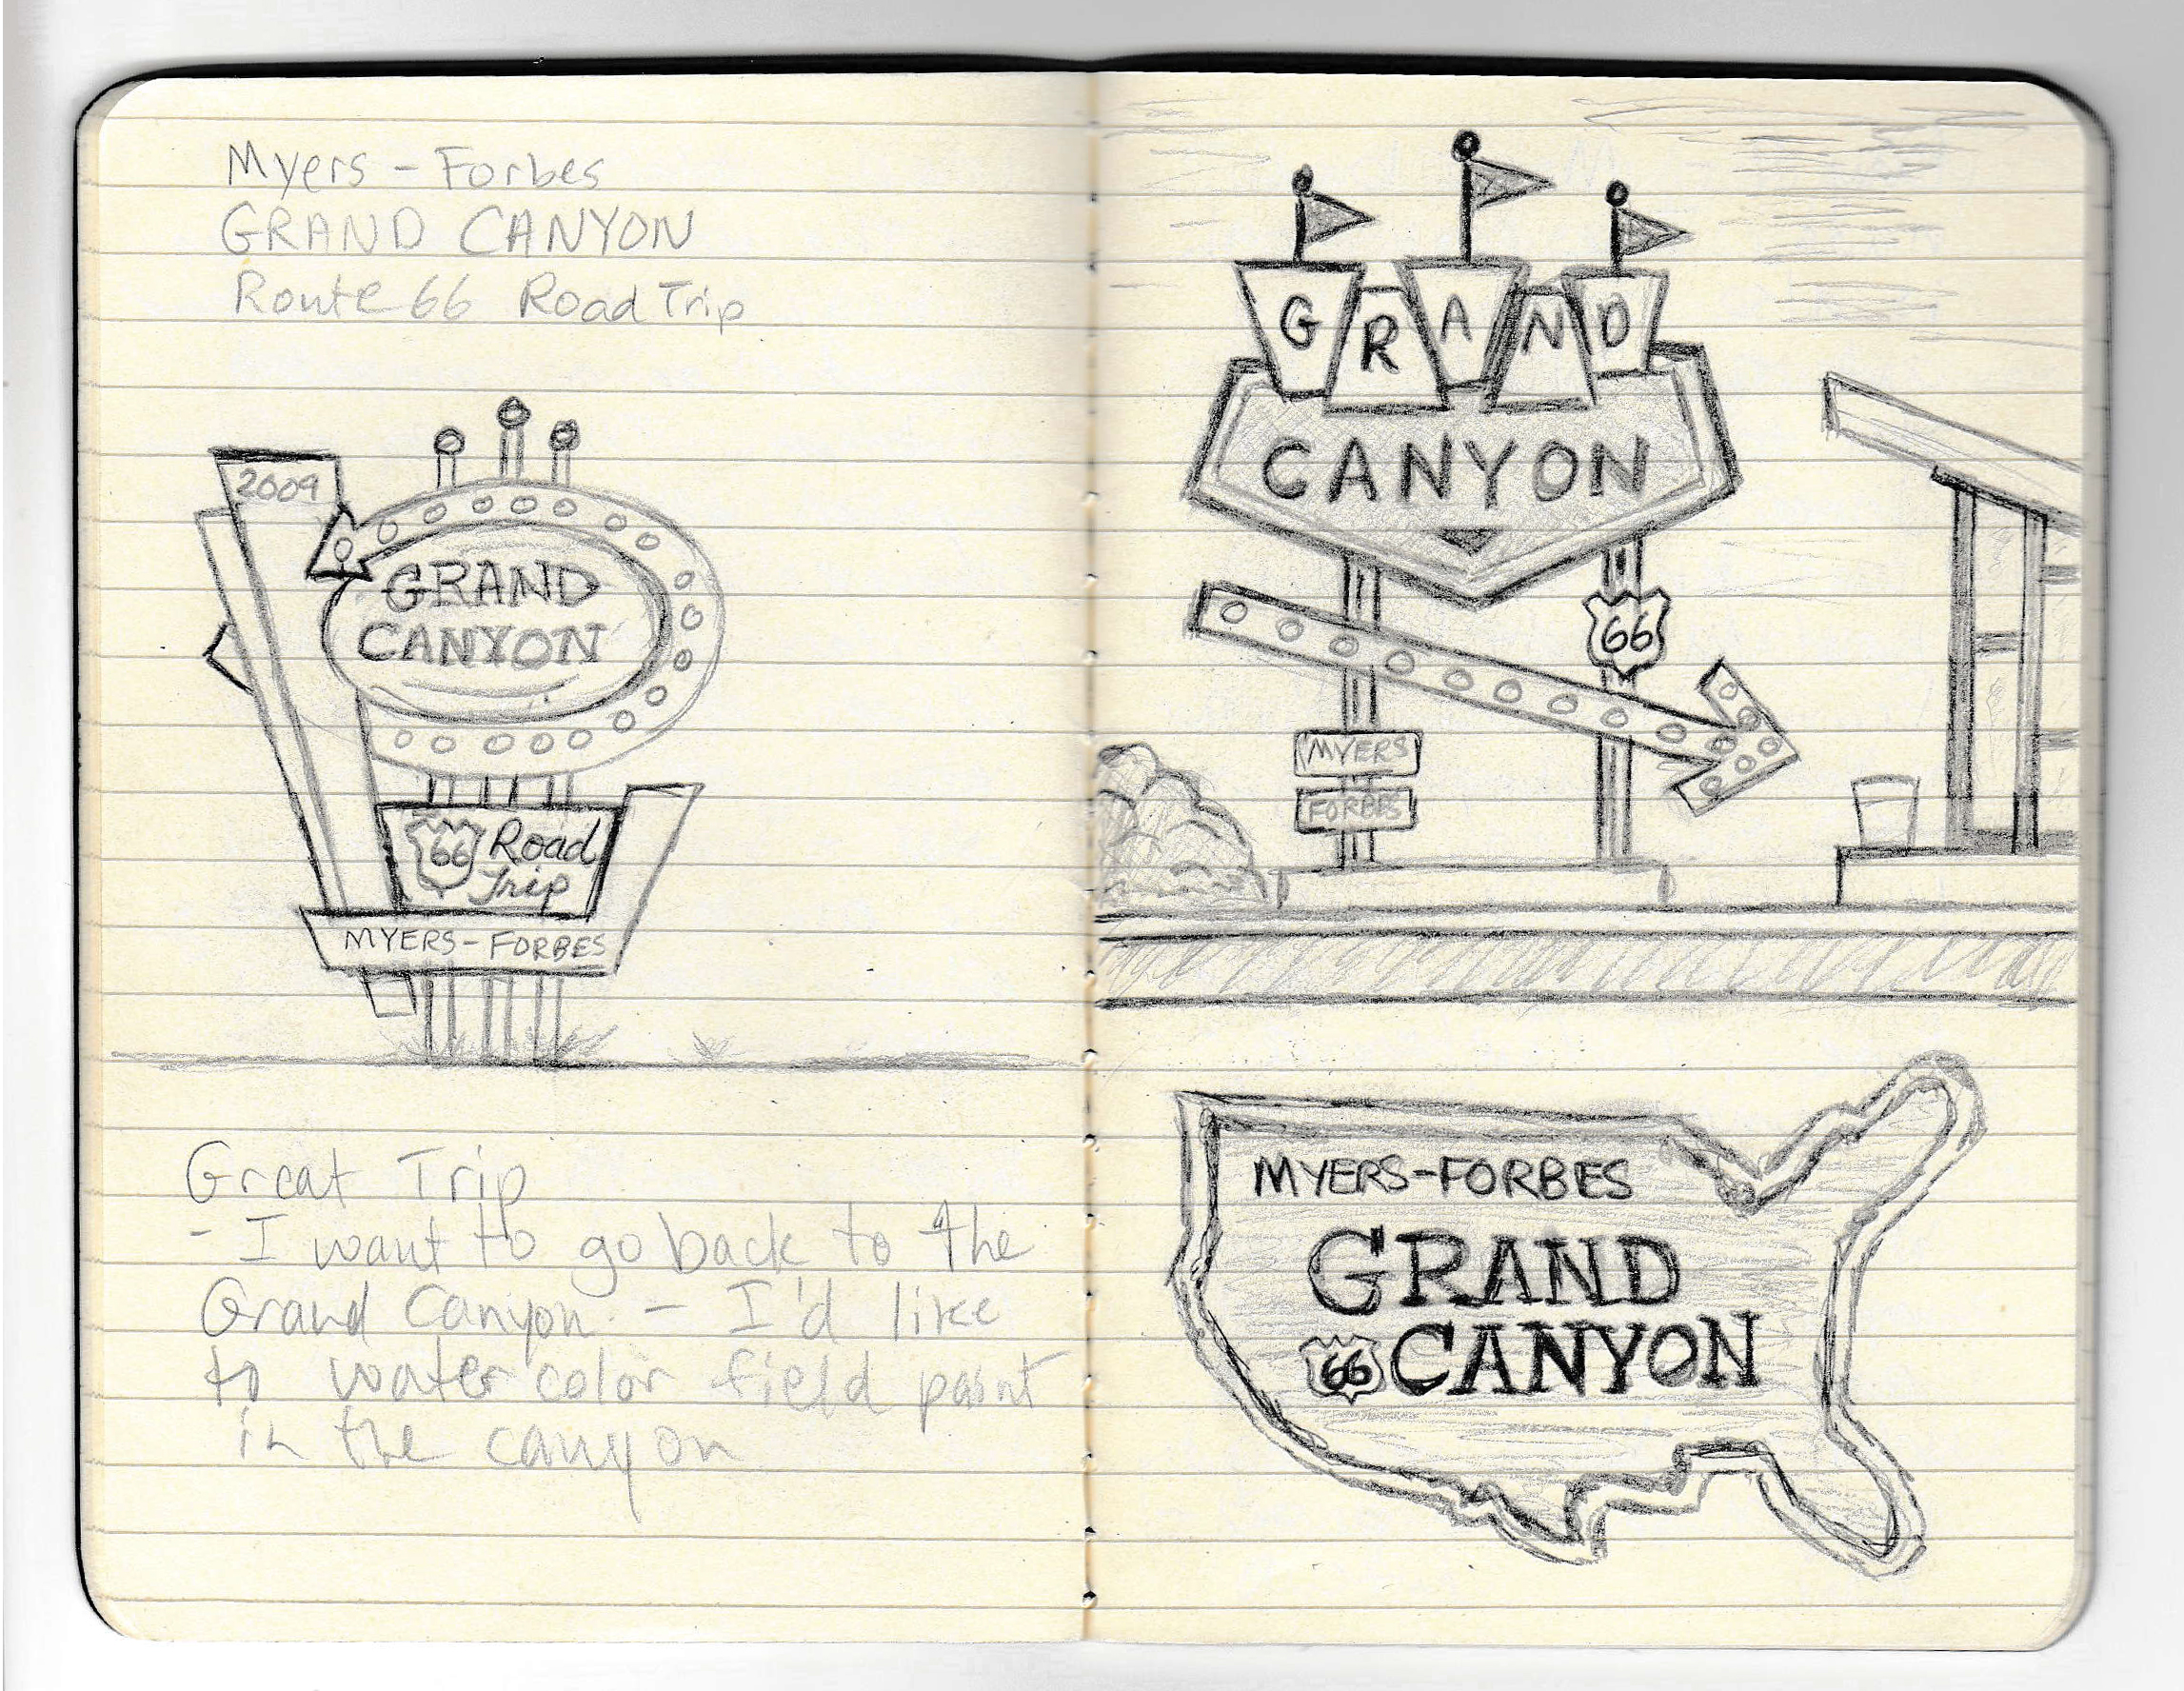 Myers - Forbes
GRAND CANYON
Route 66 Road Trip
2009
GRAND
CANYON
66 Road
Trip
MYERS-FORBES
Great Trip
- I want to go back to the
Grand Canyon - I'd like
to water color field paint
in the canyon
GRAND
CANYON
66
MYERS
FORBES
MYERS-FORBES
GRAND
66 CANYON